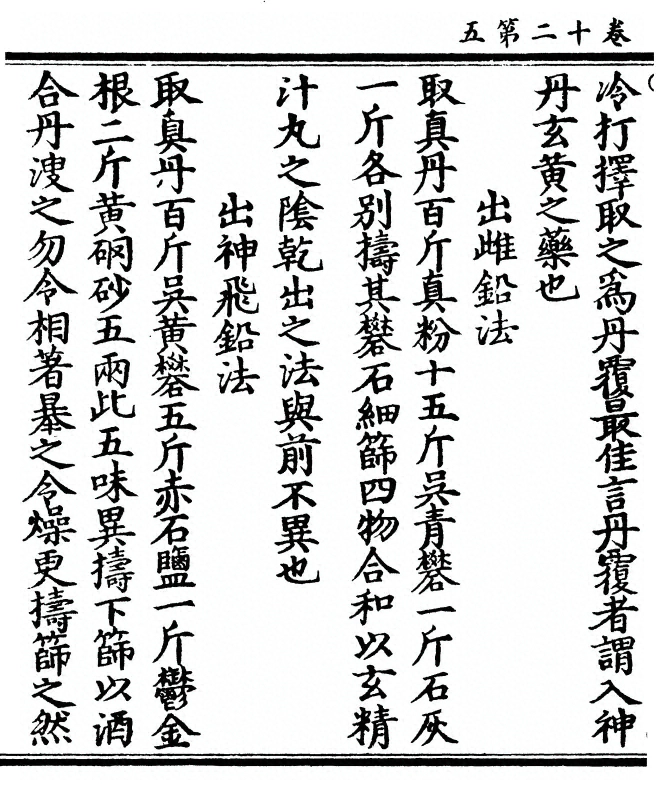 卷十二第五
冷打擇取之爲丹覆最佳言丹覆者謂入神
丹玄黃之藥也
出雌鉛法
取真丹百斤真粉十五斤吳青礬一斤石灰
一斤各別擣其礬石細篩四物合和以玄精
汁丸之陰乾出之法與前不異也
出神飛鉛法
取真丹百斤吳黃礬五斤赤石鹽一斤鬱金
根二斤黃硇砂五兩此五味異擣下篩以酒
合丹溲之勿令相著暴之令燥更擣篩之然